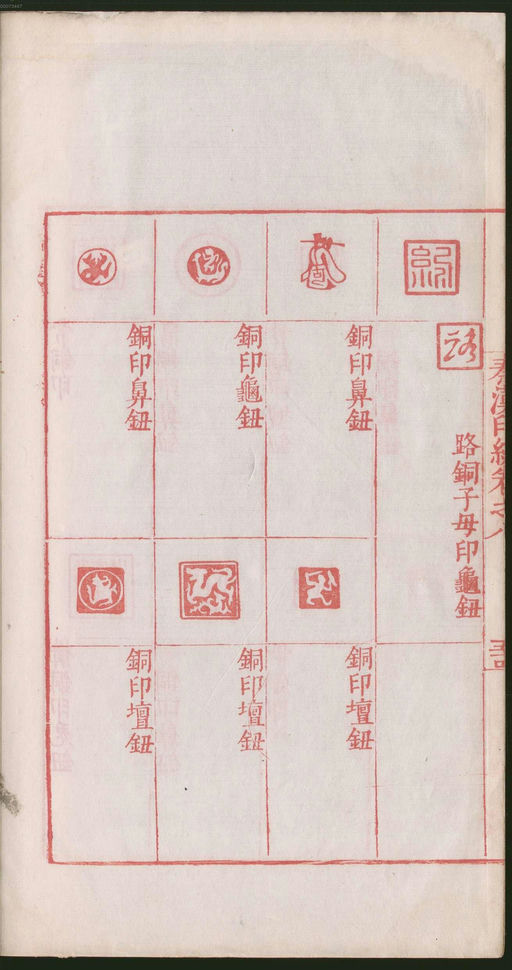 秦漢印統卷之八
路銅子母印龜鈕
銅印鼻鈕
銅印龜鈕
銅印鼻鈕
銅印壇鈕
銅印壇鈕
銅印壇鈕
00073447